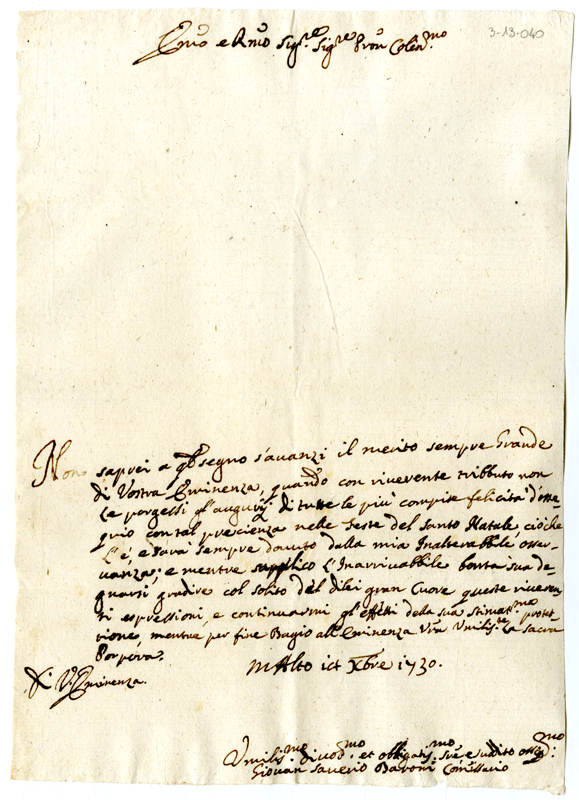 Em̃o e Rm̃o Sig.re Sig.re Pron Colen.mo
3-13-040
Non saprei a qḷ segno s'avanzi il merito sempre Grande
di Vostra Eminenza, quando con riverente tributto non
Le porgessi gl'augurij di tutte le più compite felicità d'osse-
quio con tal precienza nelle feste del Santo Natale, ciò che
L'è, e sarà sempre dovuto dalla mia Inalterabbile osser-
vanza; e mentre supplico L'Inarrivabbile bontà sua de-
gnarsi gradire col solito del dilei gran Cuore queste riveren-
ti espressioni, e continuarmi gl'effetti della sua stimat.ma protet-
tione, mentre per fine Bagio all'Eminenza Vra Umilis.te La Sacra
Porpora.
Di V. Eminenza.
Xbre 1730.
Umilis.mo divot.mo et obligatis.mo Sre e sudito osseq.mo
Giovan Saverio Baroni Comissario